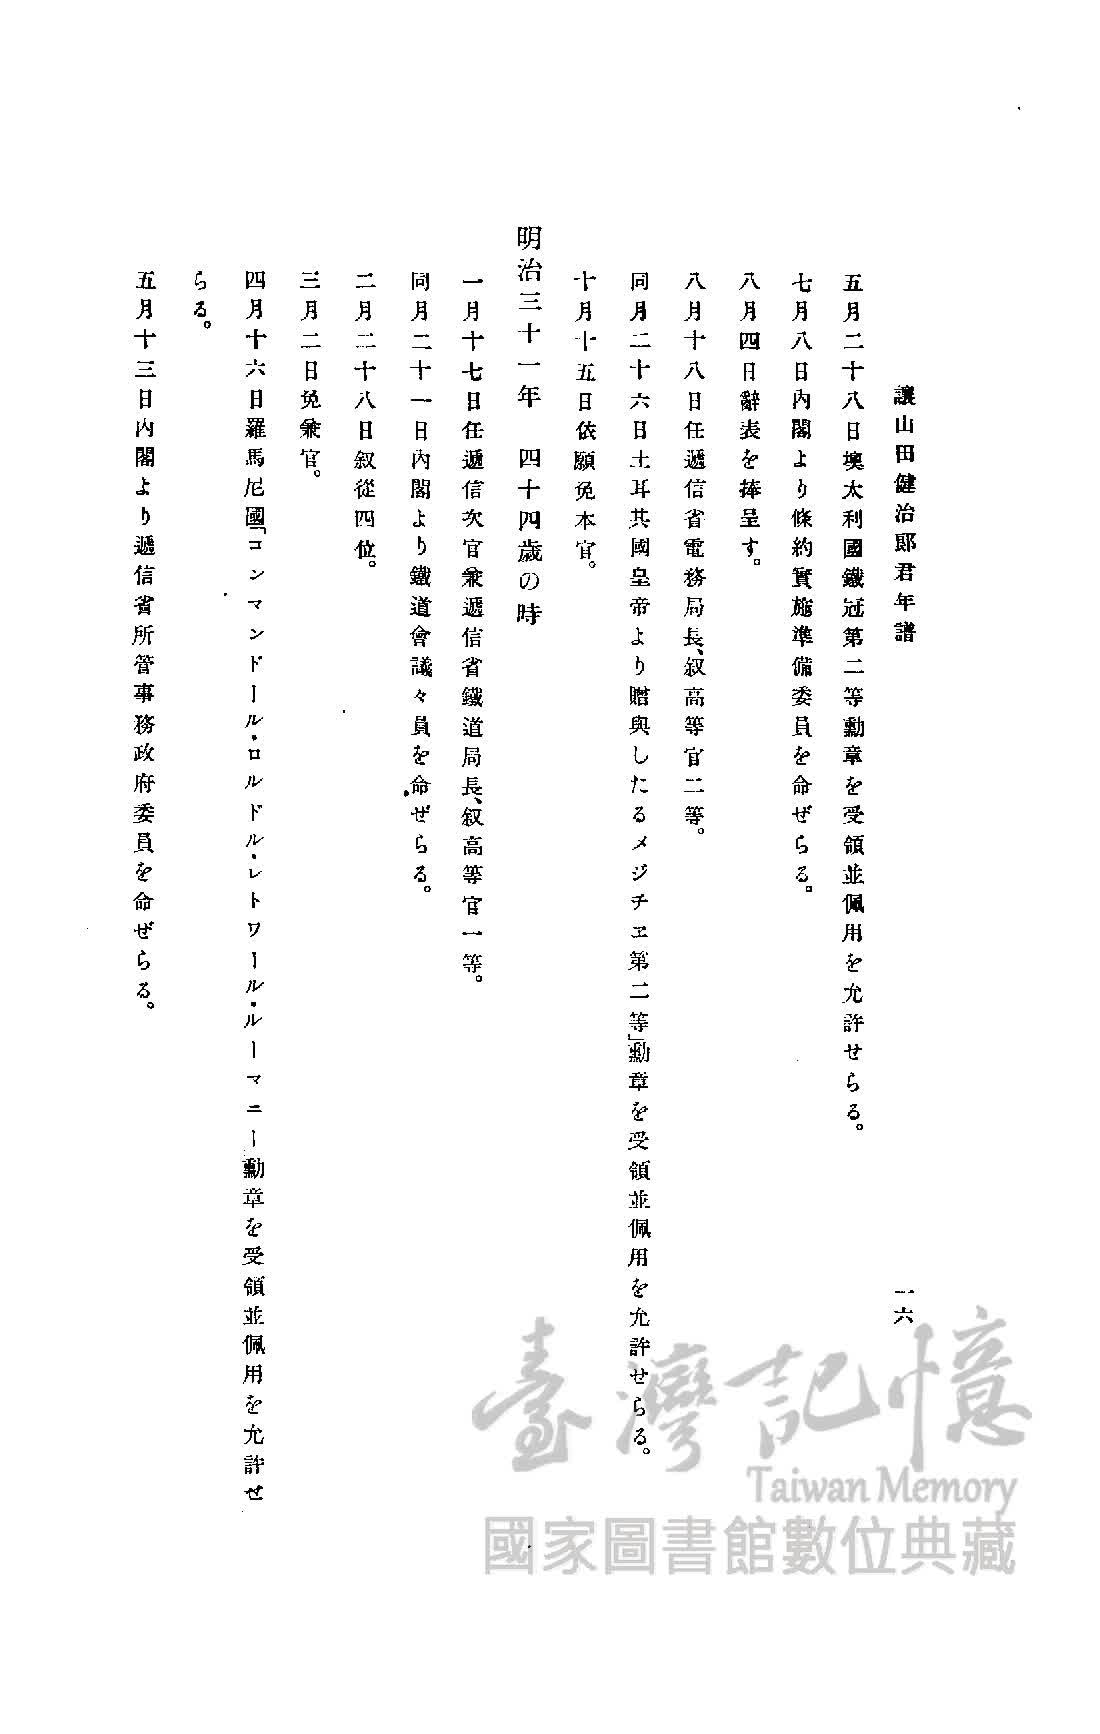 讓山田健治郎君年譜
一六
五月二十八日墺太利國鐵冠第二等勳章を受領並佩用を允許せらる。
七月八日內閣より條約實施準備委員を命ぜらる。
八月四日辭表を捧呈す。
八月十八日任遞信省電務局長、叙高等官二等。
同月二十六日土耳其國皇帝より贈與したるメジチエ第二等」勳章を受領並佩用を允許せらる。
十月十五日依願免本官。
明治三十一年 四十四歲の時
一月十七日任遞信次官兼遞信省鐵道局長、叙高等官一等。
同月二十一日內閣より鐵道會議々員を命ぜらる。
二月二十八日叙從四位。
三月二日免兼官。
四月十六日羅馬尼國「コンマンドール・ロルドル・レトワール・ルーマニー勳章を受領並佩用を允許せ
らる。
五月十三日內閣より遞信省所管事務政府委員を命ぜらる。
臺灣記憶
Taiwan Memory
國家圖書館數位典藏